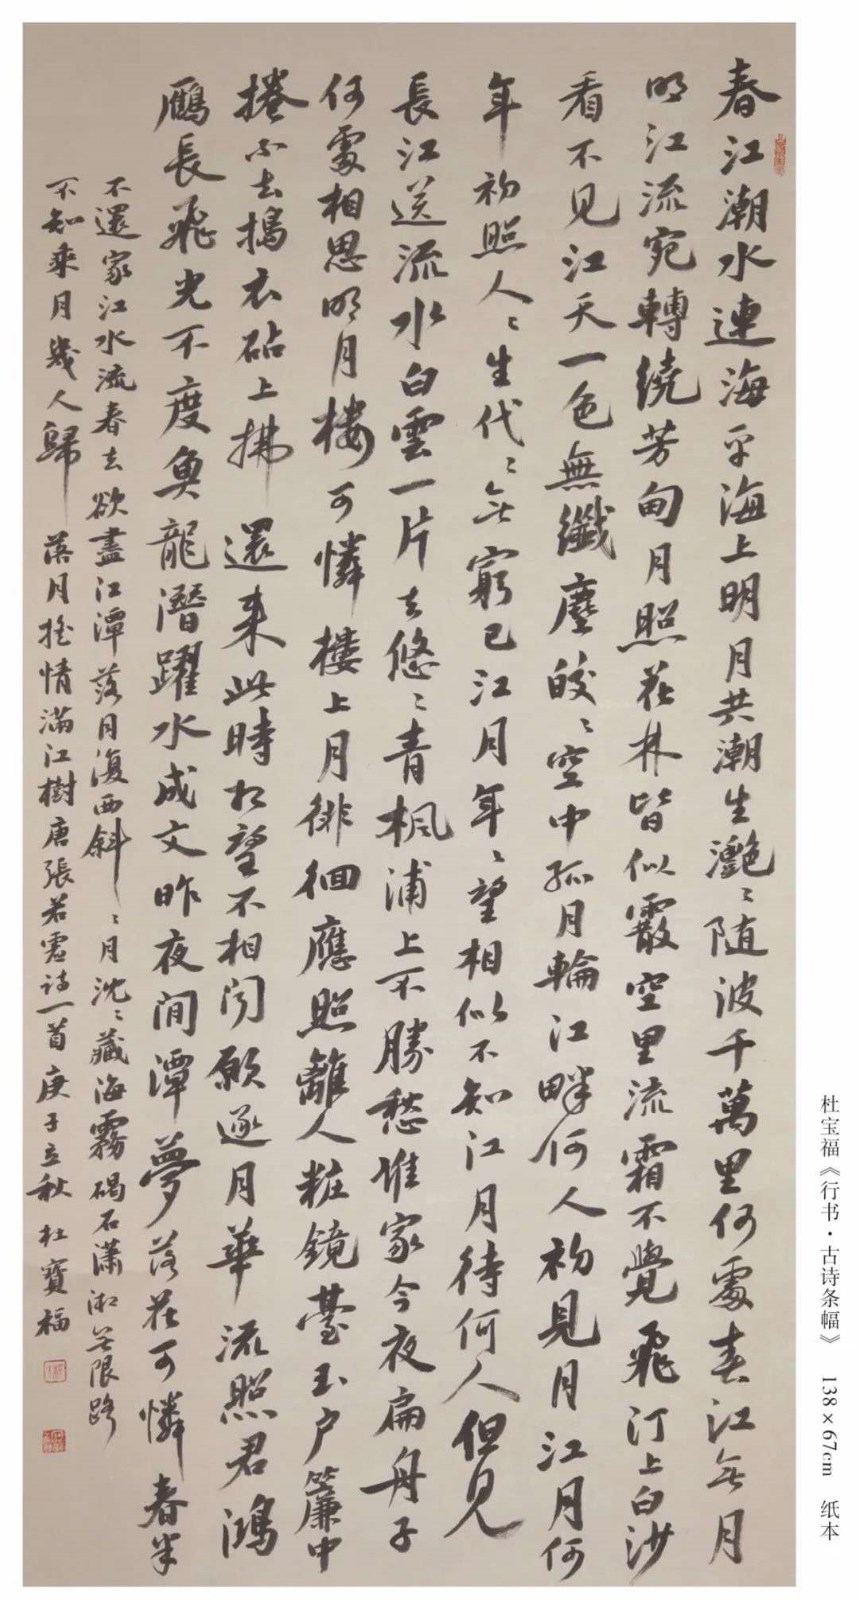 春江潮水連海平海上明月共潮生灩〻随波千萬里何處春江無月
明江流宛轉繞芳甸月照花林皆似霰空里流霜不覺飛汀上白沙
看不見江天一色無纖塵皎〻空中孤月輪江畔何人初見月江月何
年初照人〻生代〻無窮已江月年〻望相似不知江月待何人但見
長江送流水白雲一片去悠〻青楓浦上不勝愁誰家今夜扁舟子
何處相思明月樓可憐樓上月徘徊應照離人粧鏡臺玉户簾中
捲不去搗衣砧上拂還来此時相望不相聞願逐月華流照君鴻
鴈長飛光不度魚龍潛躍水成文昨夜閒潭夢落花可憐春半
不還家江水流春去欲盡江潭落月復西斜〻月沈〻藏海霧碣石瀟湘無限路
不知乘月幾人歸落月摇情滿江樹唐張若虚詩一首庚子立秋杜寶福
杜宝福《行书·古诗条幅》 138×67cm 纸本